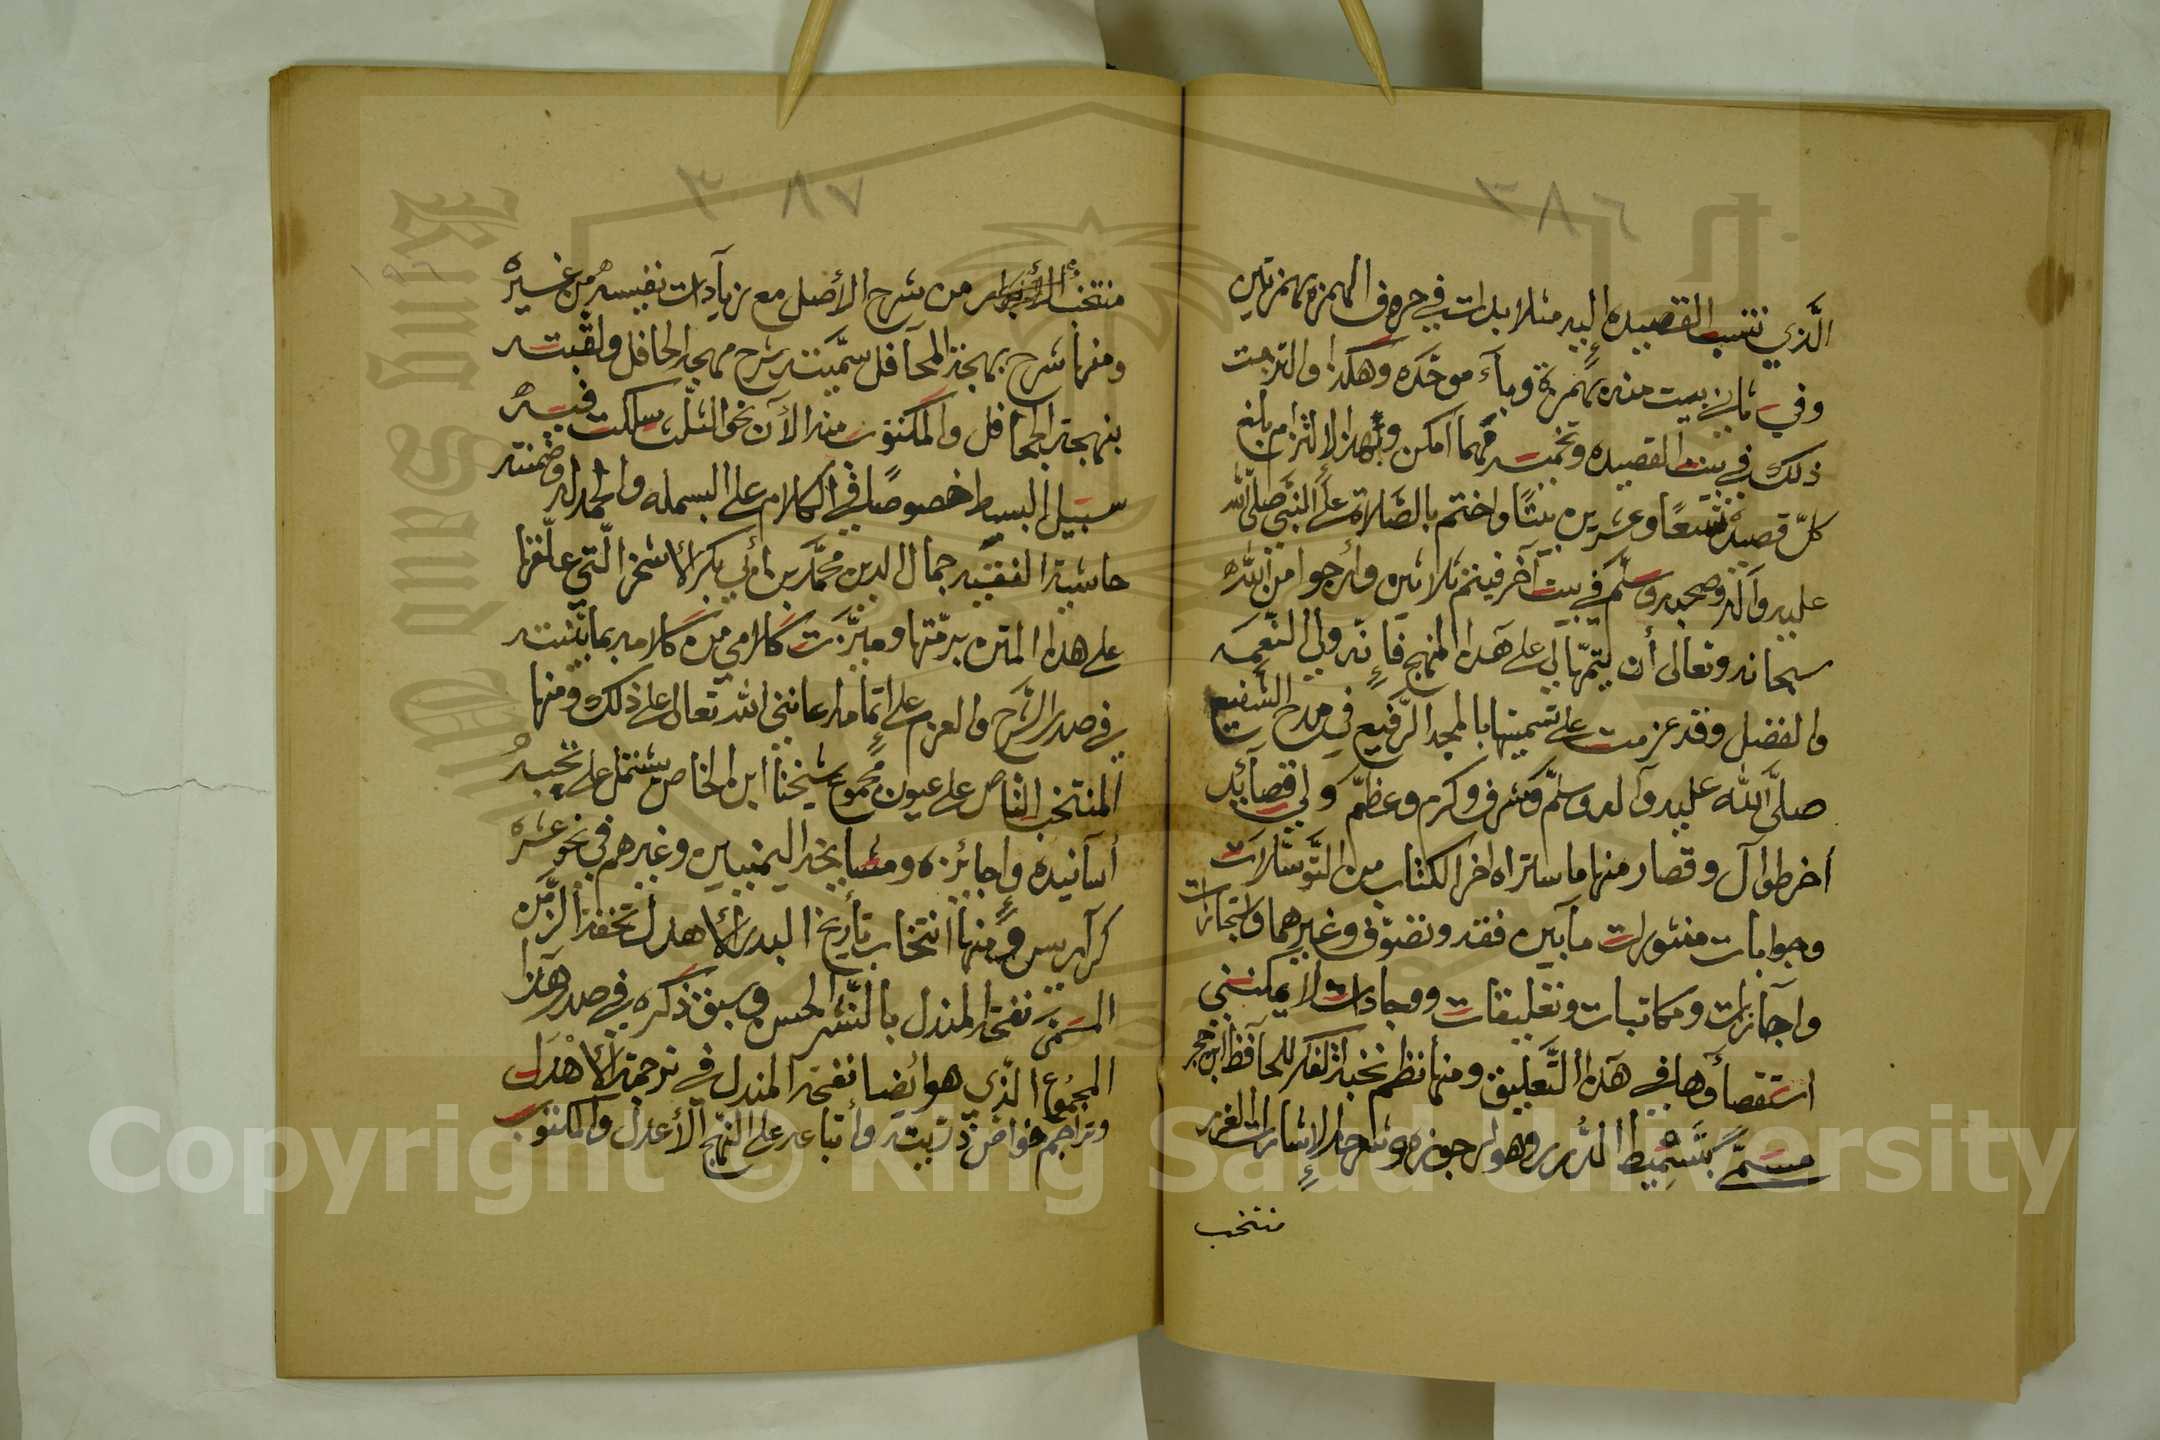 ٣٨٦
الَّذي تنسب القصيده إليه مثلا بدات في حرف الهمزه بهمزتين
وفي ثاني بيت منه بهمزة وباء موحَّده وهكذا والتزمت
ذلك في بيت القصيده وتخميسه مهما امكن وبهذا الالتزام بلغ
كلّ قصيدة تسعًا وعشرين بيتًا واختم بالصَّلاة علَى النَّبي صلى الله
عليه وآله وصحبه وسلَّم في بيت آخر فيتم ثلاثين وأرجوا من الله
سبحانه وتعالى أن يتمّها لي على هذا المنهج فإنّه ولي النّعمه
والفضل وقد عزمت على تسميتها بالمجد الرَّفيع في مدح الشفيع
صلَّى الله عليه وآله وسلَّم وشرف وكرم وعظّم ولي قصائد
أخر طوال وقصار منها ما ستراه اخر الكتاب من التَّوسّلات
وجوابات منثورات مابين فقه وتصوّف وغيرهما واستجازات
واجازات ومكاتبات وتعليقات ووجادات لا يمكنني
استقصاؤها في هذا التَّعليق ومنها نظم نخبة الفكر للحافظ ابن حجر
مسمّى بتَسْمِيْط الدُّرر وهو ارجوزه وشرحه الإشارات الغرر
منتخب
٣٨٧
منتخب من شرح الأصل مع زيادات نفيسه من غيره
ومنها شرح بهجة المحافل سمَّيته شرح مهجة الحافل ولقّبته
بنهجة الجحافل والمكتوب منه الآن نحو الثلث سلكت فيه
سبيل البسط خصوصًا في الكلام على البسمله والحمدله وضمنته
حاشية الفقيه جمال الدين محمَّد بن أبي بكر الاشخر الّتي علّقها
على هذا المتن برمّتها وميَّزت كلامي من كلامه بما بيّنته
في صدر الشَّرح والعزم على إتمامه اعانني الله تعالى على ذلك ومنها
المنتخب النَّاص على عيون مجموع شيخنا ابن الخاص يشتمل على نخبة
أسانيده وإجائزه ومشايخه اليمنيين وغيرهم في نحو عشرة
كراريس ومنها انتخاب تأريخ البدر الأهدل تحفة الزَّمن
المسَمَى نفحة المندل بالنَّشر الحسن وسبق ذكره في صدر هذا
المجموع الّذي هو ايضا نفحة المندل في ترجمة الأهدل
وتراجم خواصّ ذرّيته وأتباعه على النهج الأعدل والمكتوب